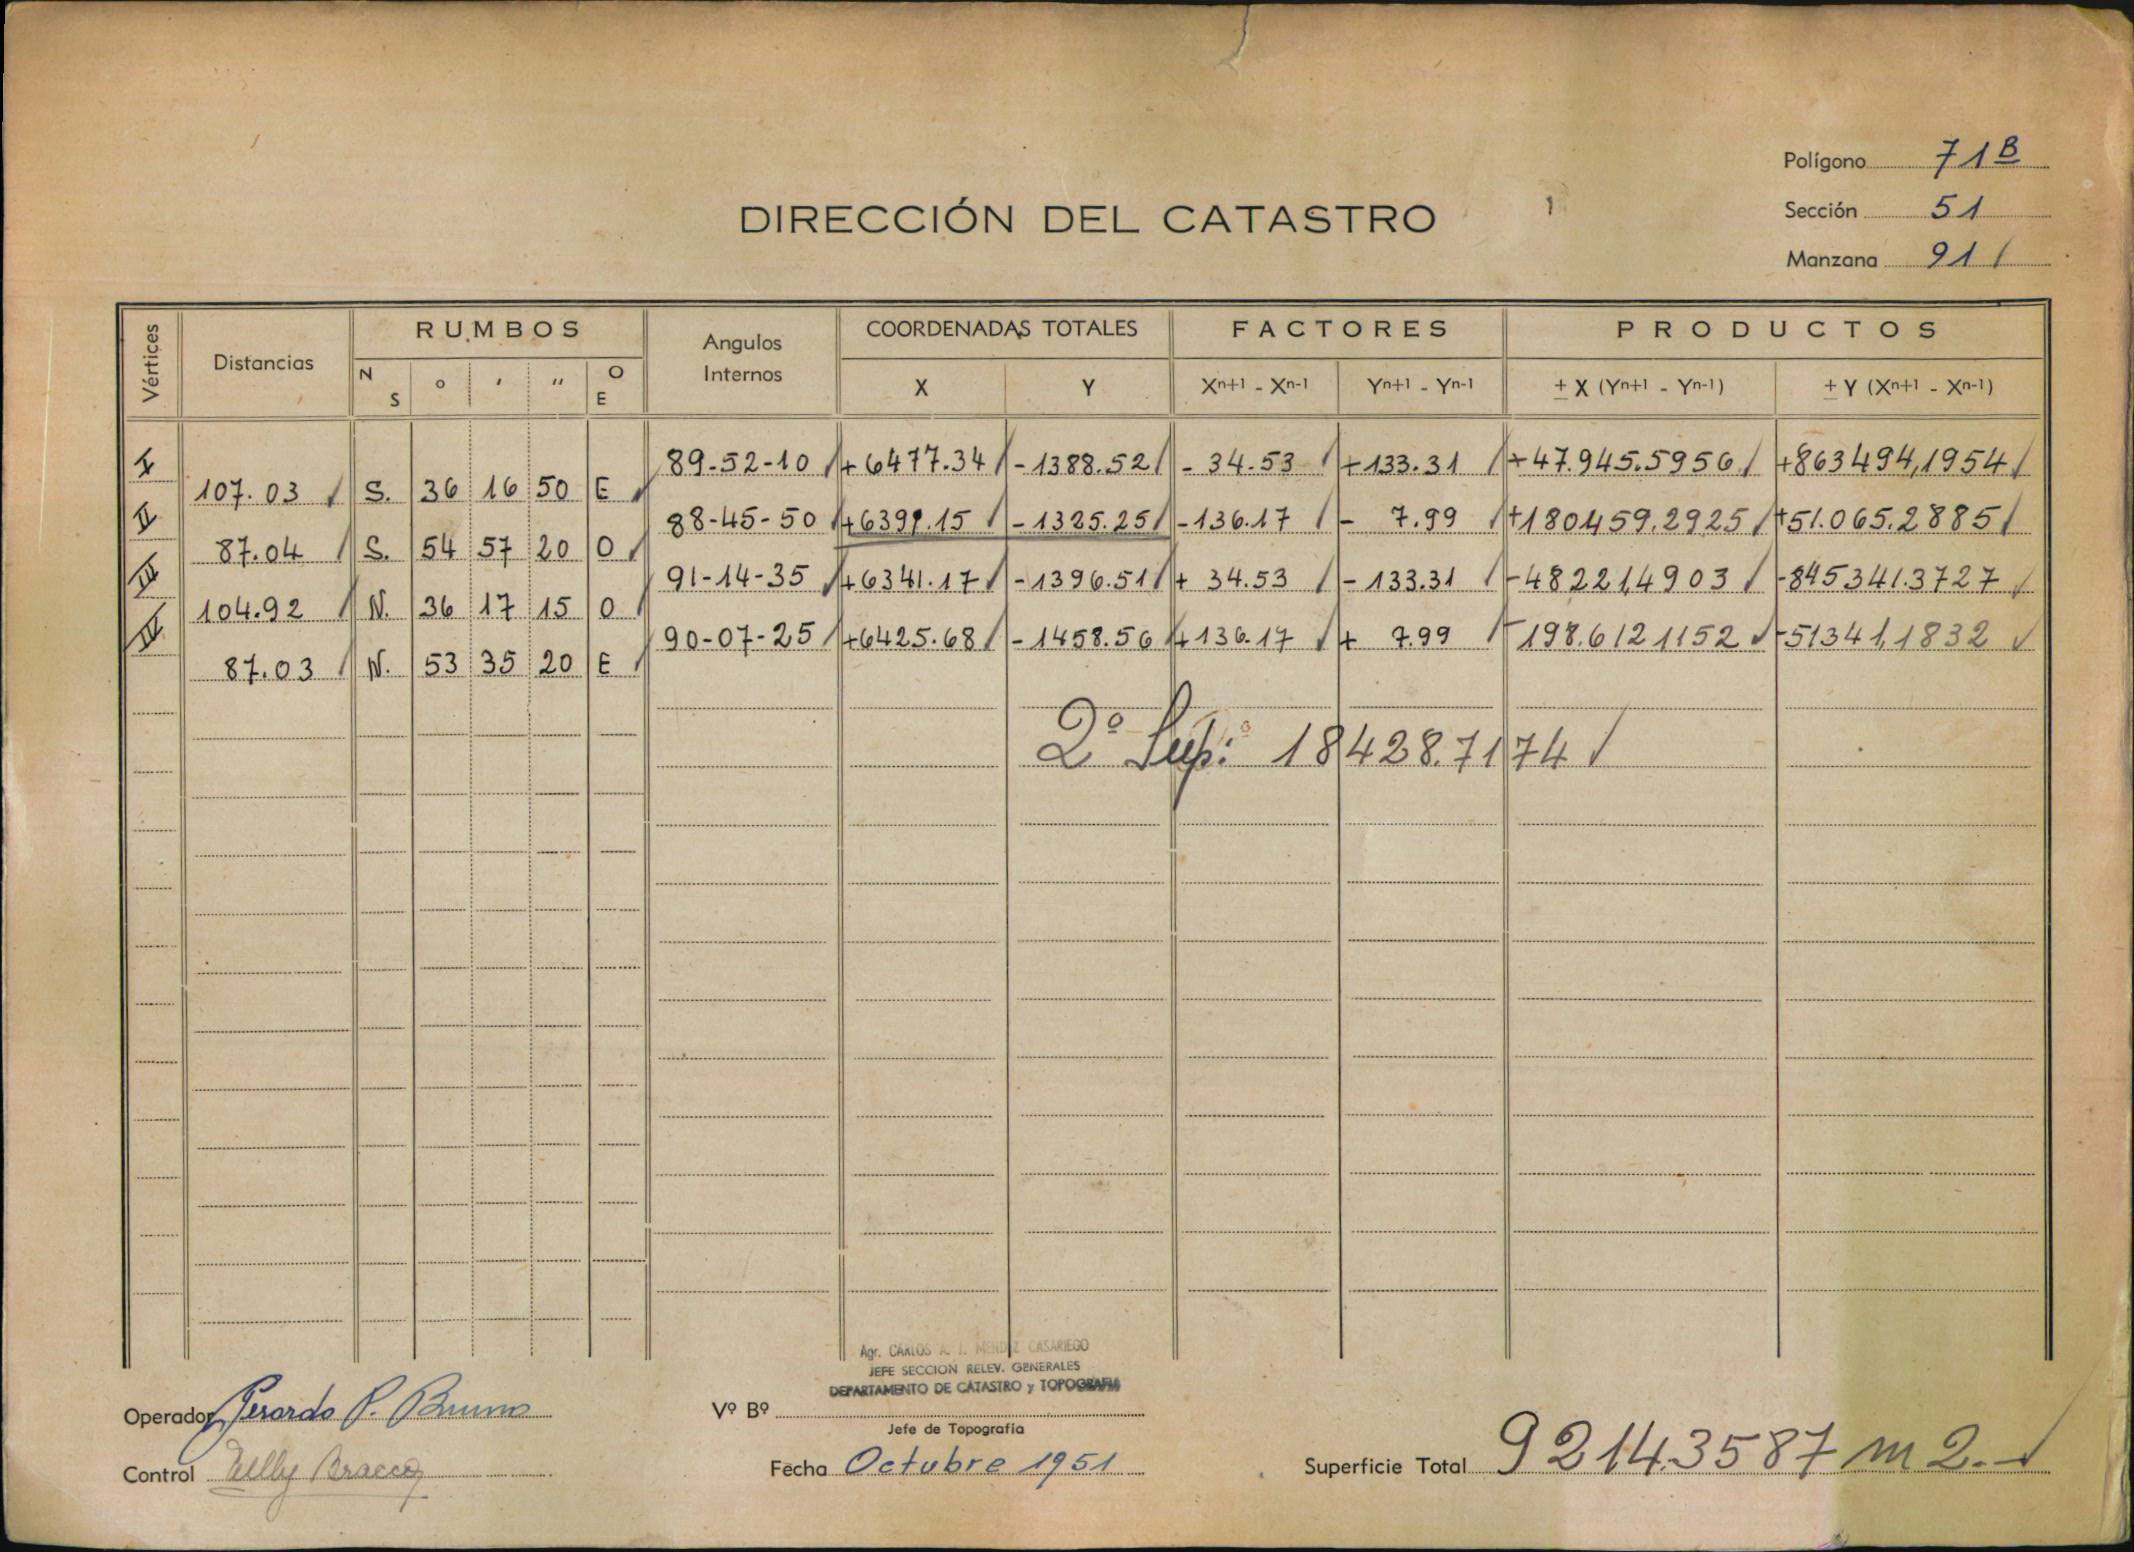 Polígono 71 B
Sección 51
Manzana 91
DIRECCIÓN DEL CATASTRO
Vértices Distancias RUMBOS Angulos Internos COORDENADAS TOTALES FACTORES PRODUCTOS
N S ° ' " O E X Y Xn+1 - Xn-1 Yn+1 - Yn-1 ± X (Yn+1 - Yn-1) ± Y (Xn+1 - Xn-1)
I 89-52-10 +6477.34 -1388.52 - 34.53 +133.31 +47.945.5956 +863494,1954
107.03 S. 36 16 50 E
II 88-45-50 +6391.15 -1325.25 -136.17 - 7.99 +180459.2925 +51.065.2885
87.04 S. 54 57 20 O
III 91-14-35 +6341.17 -1396.51 + 34.53 -133.31 -48221,4903 -845341.3727
104.92 N. 36 17 15 O
IV 90-07-25 +6425.68 -1458.56 +136.17 + 7.99 -198.6121152 -51341,1832
87.03 N. 53 35 20 E
2º Sup: 18428.7174
Agr. CARLOS A. J. MENDEZ CASARIEGO
JEFE SECCION RELEV. GENERALES
DEPARTAMENTO DE CATASTRO y TOPOGRAFIA
Operador Gerardo P. Bruno
Vº Bº
Jefe de Topografía
Control Nelly Bracco
Fecha Octubre 1951
Superficie Total 9214.3587 m2.-